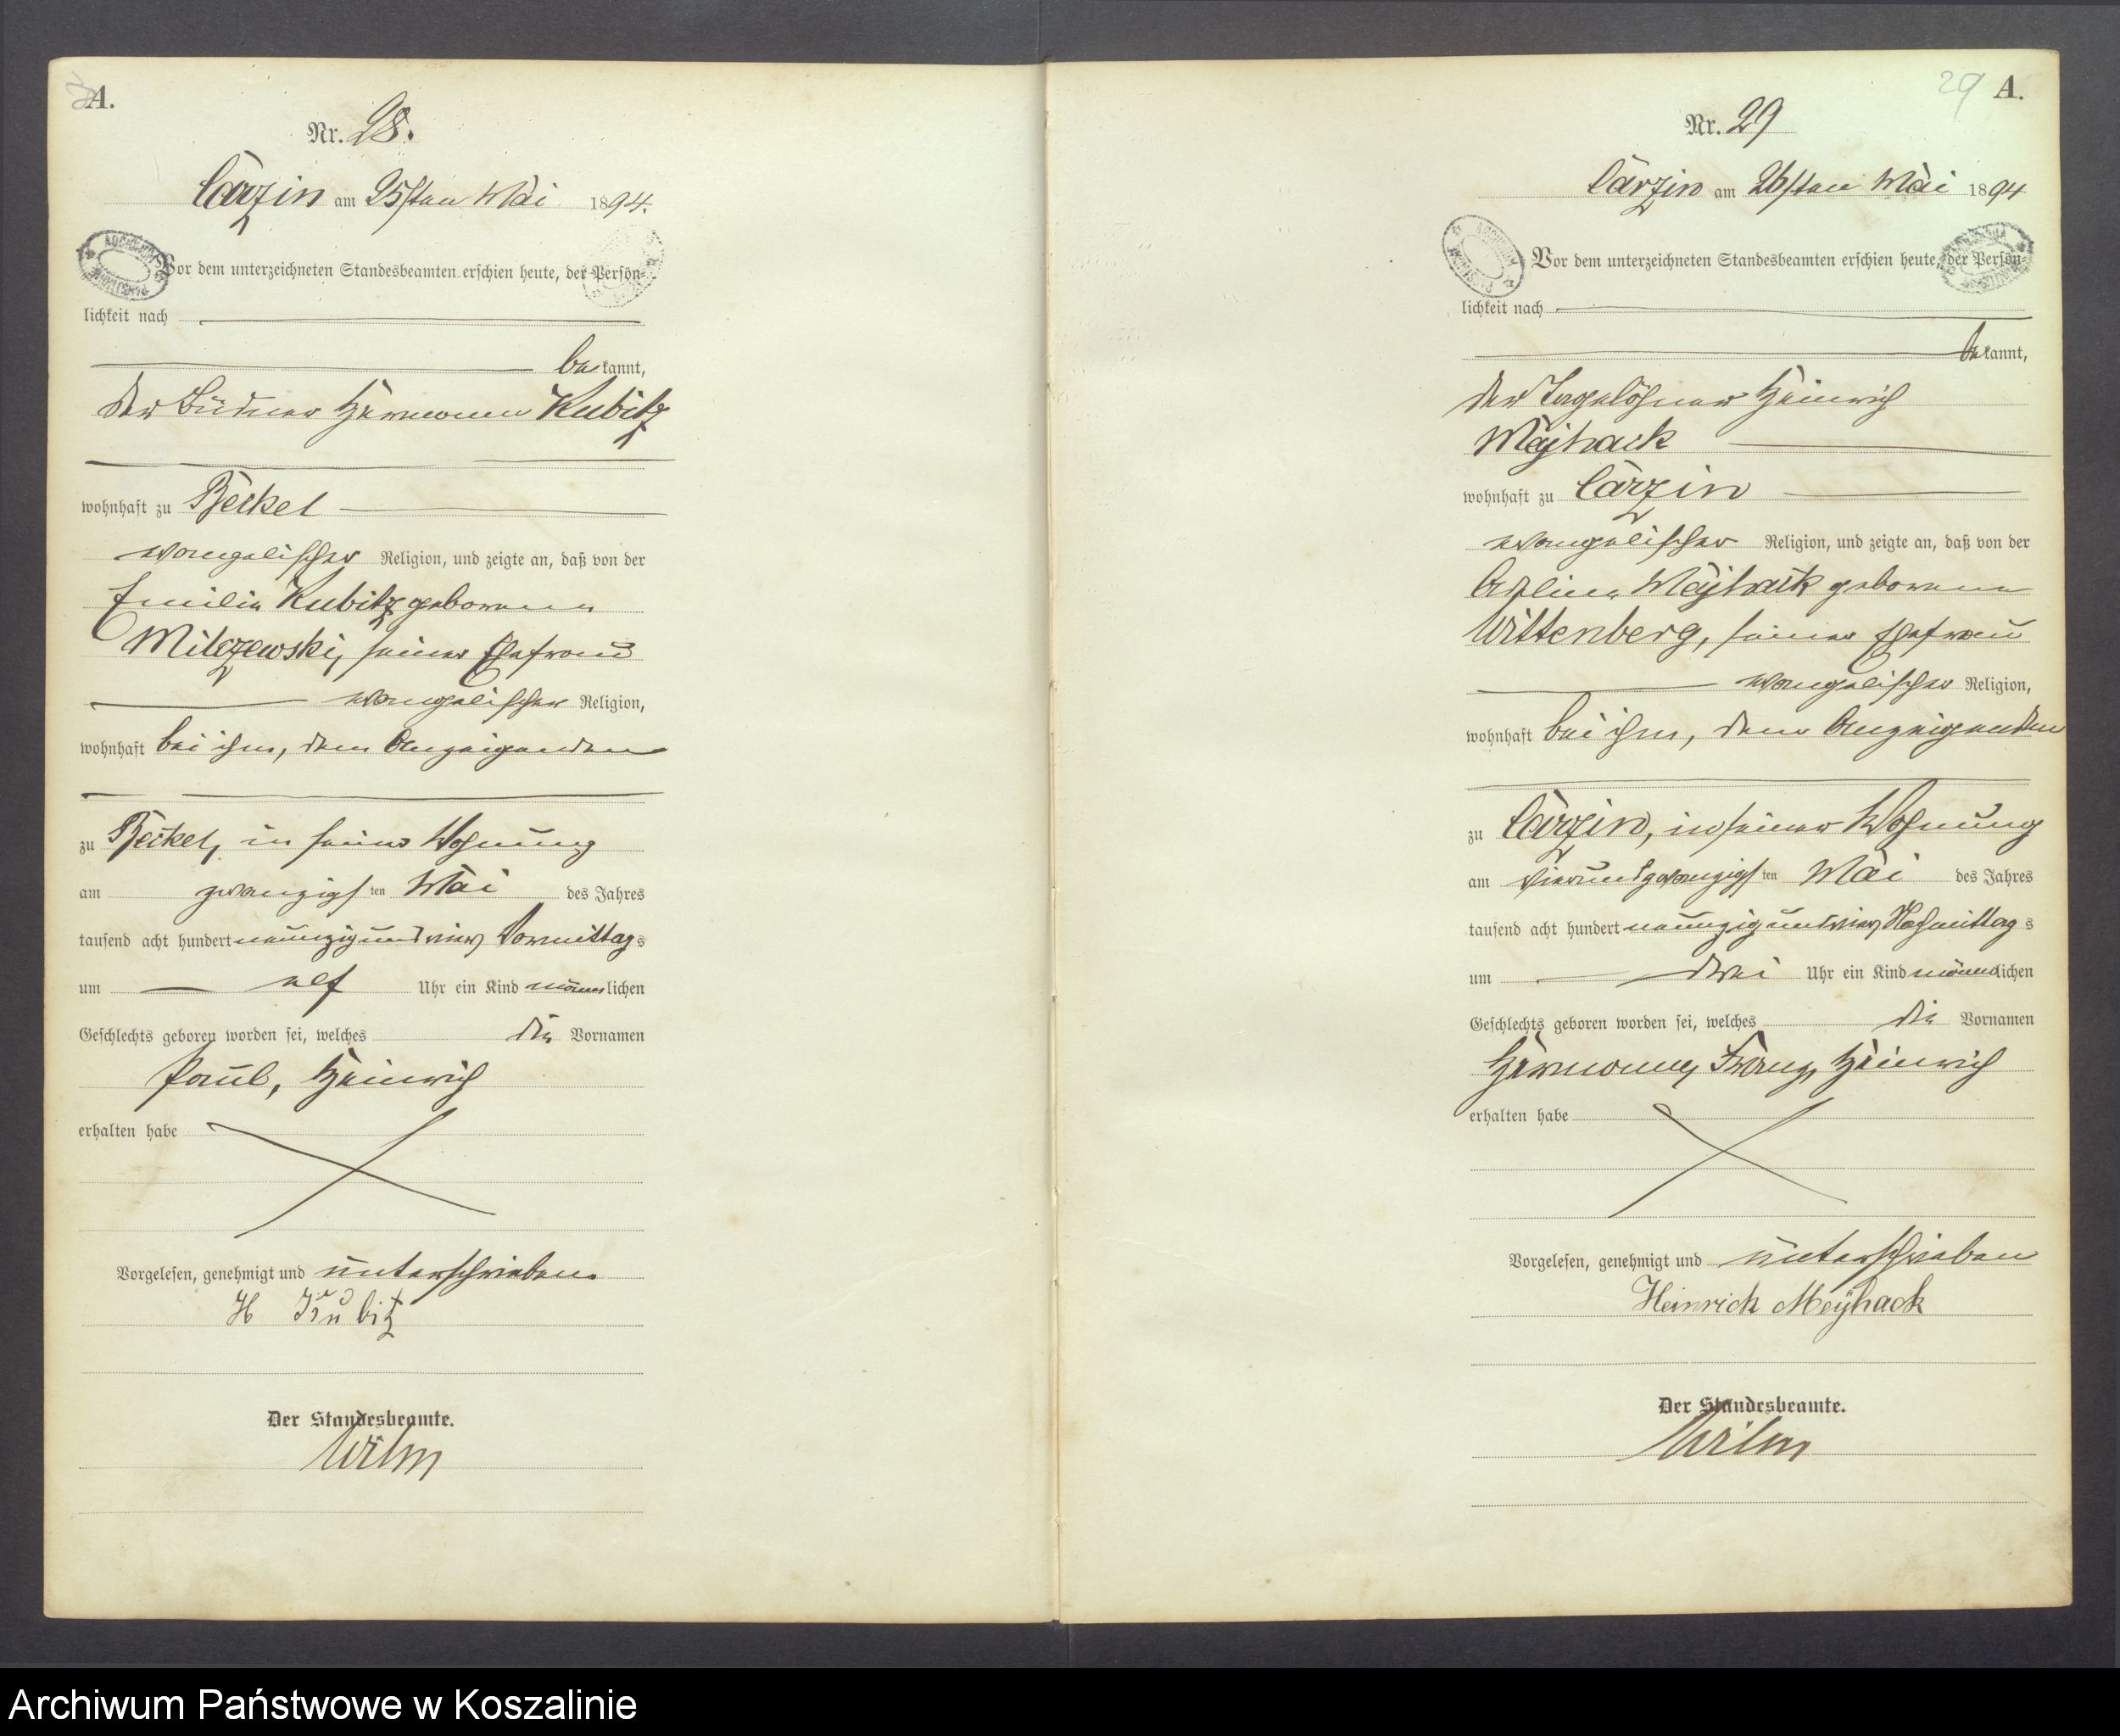 A.
Nr. 28.
Carzin am 25sten Mai 1894.
Vor dem unterzeichneten Standesbeamten erschien heute, der Persön-
lichkeit nach
bekannt,
der Büdner Hermann Kubitz
wohnhaft zu Beckel
evangelischer Religion, und zeigte an, daß von der
Emilie Kubitz geborenen
Milczewski, seiner Ehefrau
evangelischer Religion,
wohnhaft bei ihm, dem Anzeigenden
zu Beckel, in seiner Wohnung
am zwanzigsten Mai des Jahres
tausend acht hundert neunzig und vier Vormittags
um elf Uhr ein Kind männlichen
Geschlechts geboren worden sei, welches die Vornamen
Paul, Heinrich
erhalten habe
Vorgelesen, genehmigt und unterschrieben
H Kubitz
Der Standesbeamte.
Wilm
29 A.
Nr. 29
Carzin am 26sten Mai 1894
Vor dem unterzeichneten Standesbeamten erschien heute, der Persön-
lichkeit nach
bekannt,
der Tagelöhner Heinrich
Mejhack
wohnhaft zu Carzin
evangelischer Religion, und zeigte an, daß von der
Mejhack geborenen
Wittenberg, seiner Ehefrau
evangelischer Religion,
wohnhaft bei ihm, dem Anzeigenden
zu Carzin, in seiner Wohnung
am vierundzwanzigsten Mai des Jahres
tausend acht hundert neunzig und vier Nachmittags
um drei Uhr ein Kind männlichen
Geschlechts geboren worden sei, welches die Vornamen
Hermann, Franz, Heinrich
erhalten habe
Vorgelesen, genehmigt und unterschrieben
Heinrich Meÿhack
Der Standesbeamte.
Wilm
Archiwum Państwowe w Koszalinie